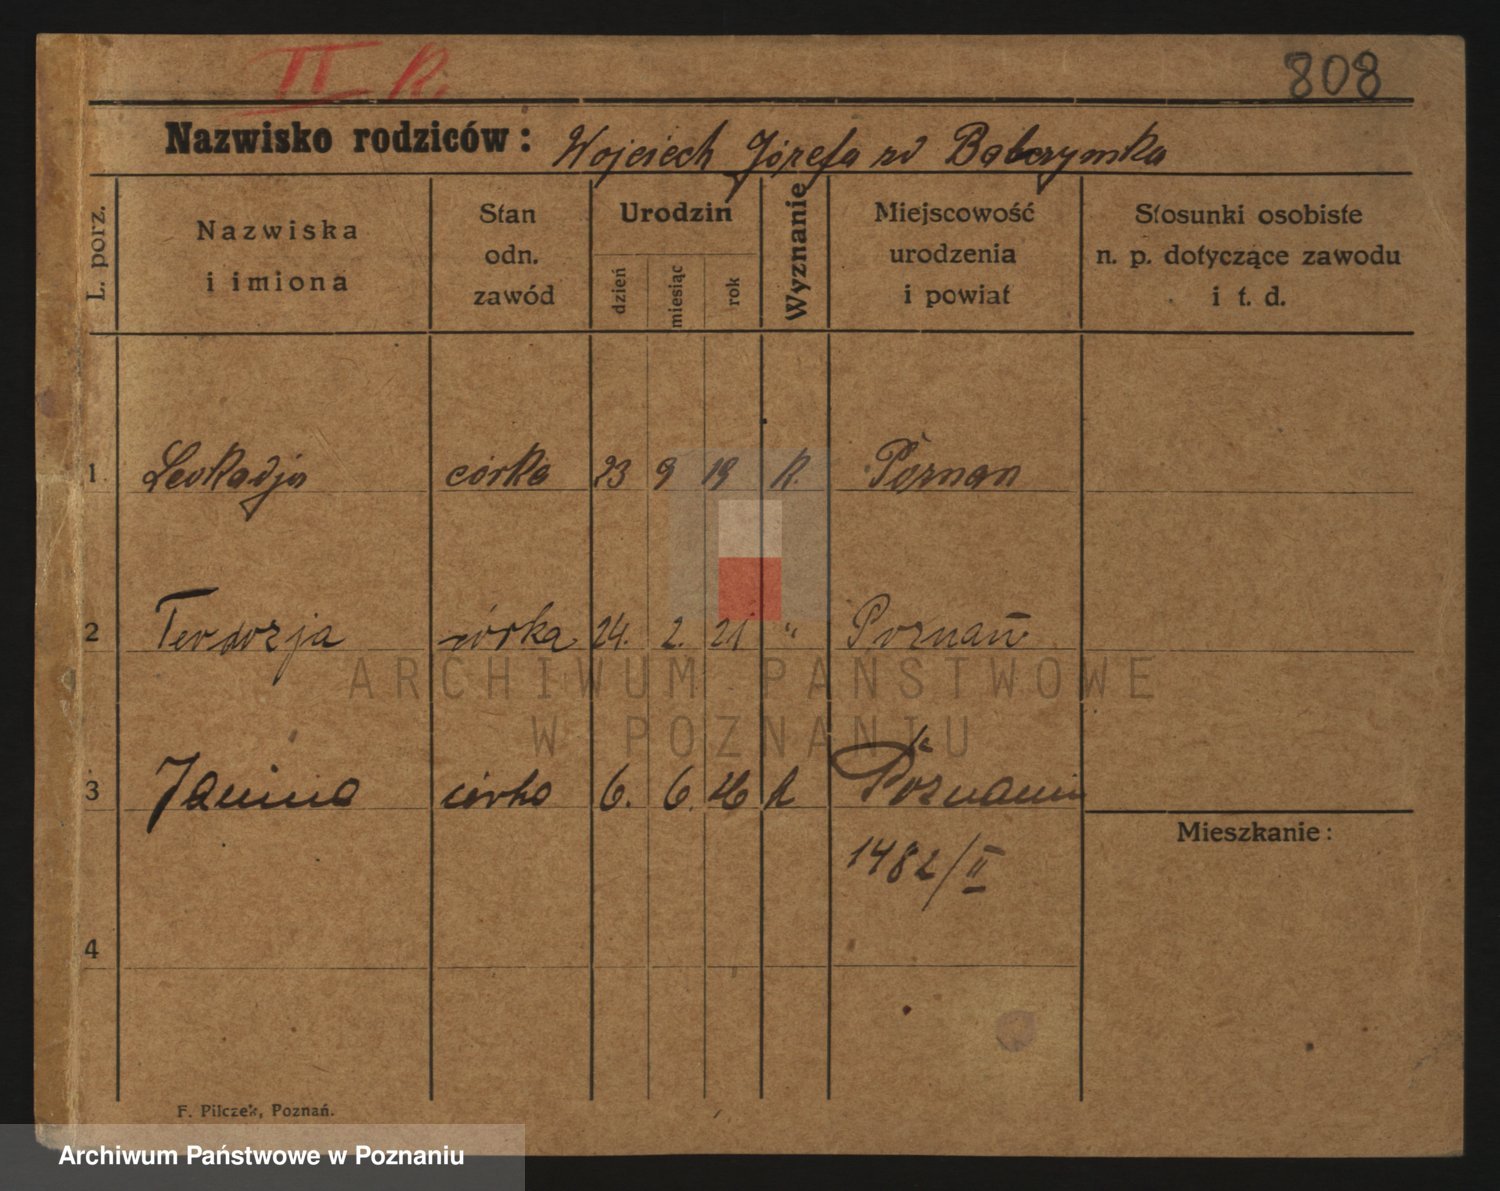 II R.
808
Nazwisko rodziców: Wojciech Józefa zd Babczynska
L. porz.
Nazwiska i imiona
Stan odn. zawód
Urodzin
dzień miesiąc rok
Wyznanie
Miejscowość urodzenia i powiat
Stosunki osobiste n. p. dotyczące zawodu i t. d.
1. Leokadja córka 23 9 19 R. Poznan
2 Teodozja córka 24. 2. 21 " Poznań
ARCHIWUM PAŃSTWOWE
W POZNANIU
3 Janina córka 6. 6. 26 k Poznaniu
1482/II
Mieszkanie:
4
F. Pilczek, Poznań.
Archiwum Państwowe w Poznaniu